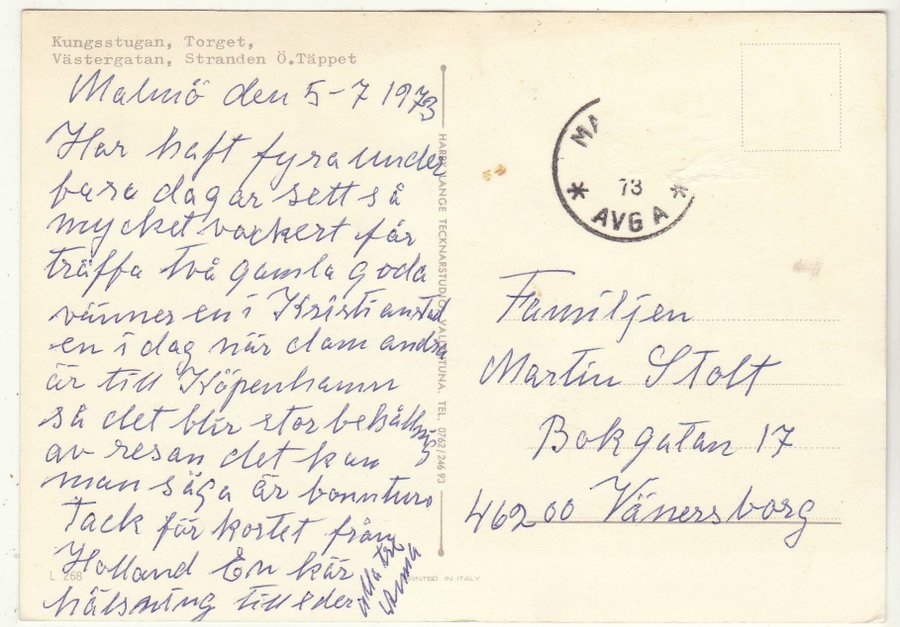 Kungsstugan, Torget,
Västergatan, Stranden Ö.Täppet
Malmö den 5-7 1973
Har haft fyra under
bara dagar sett så
mycket vackert får
träffa två gamla goda
vänner en i Kristianstad
en i dag när dom andra
är till Köpenhamn
så det blir stor behållning
av resan det kan
man säga är bonnturo
Tack för kortet från
Holland En kär
hälsning till eder
alla tre
L 268
HARRY LANGE TECKNARSTUDIO, VALLENTUNA. TEL. 0762/246 93
PRINTED IN ITALY
MA
73
* AVG A *
Familjen
Martin Stolt
Bokgatan 17
46200 Vänersborg